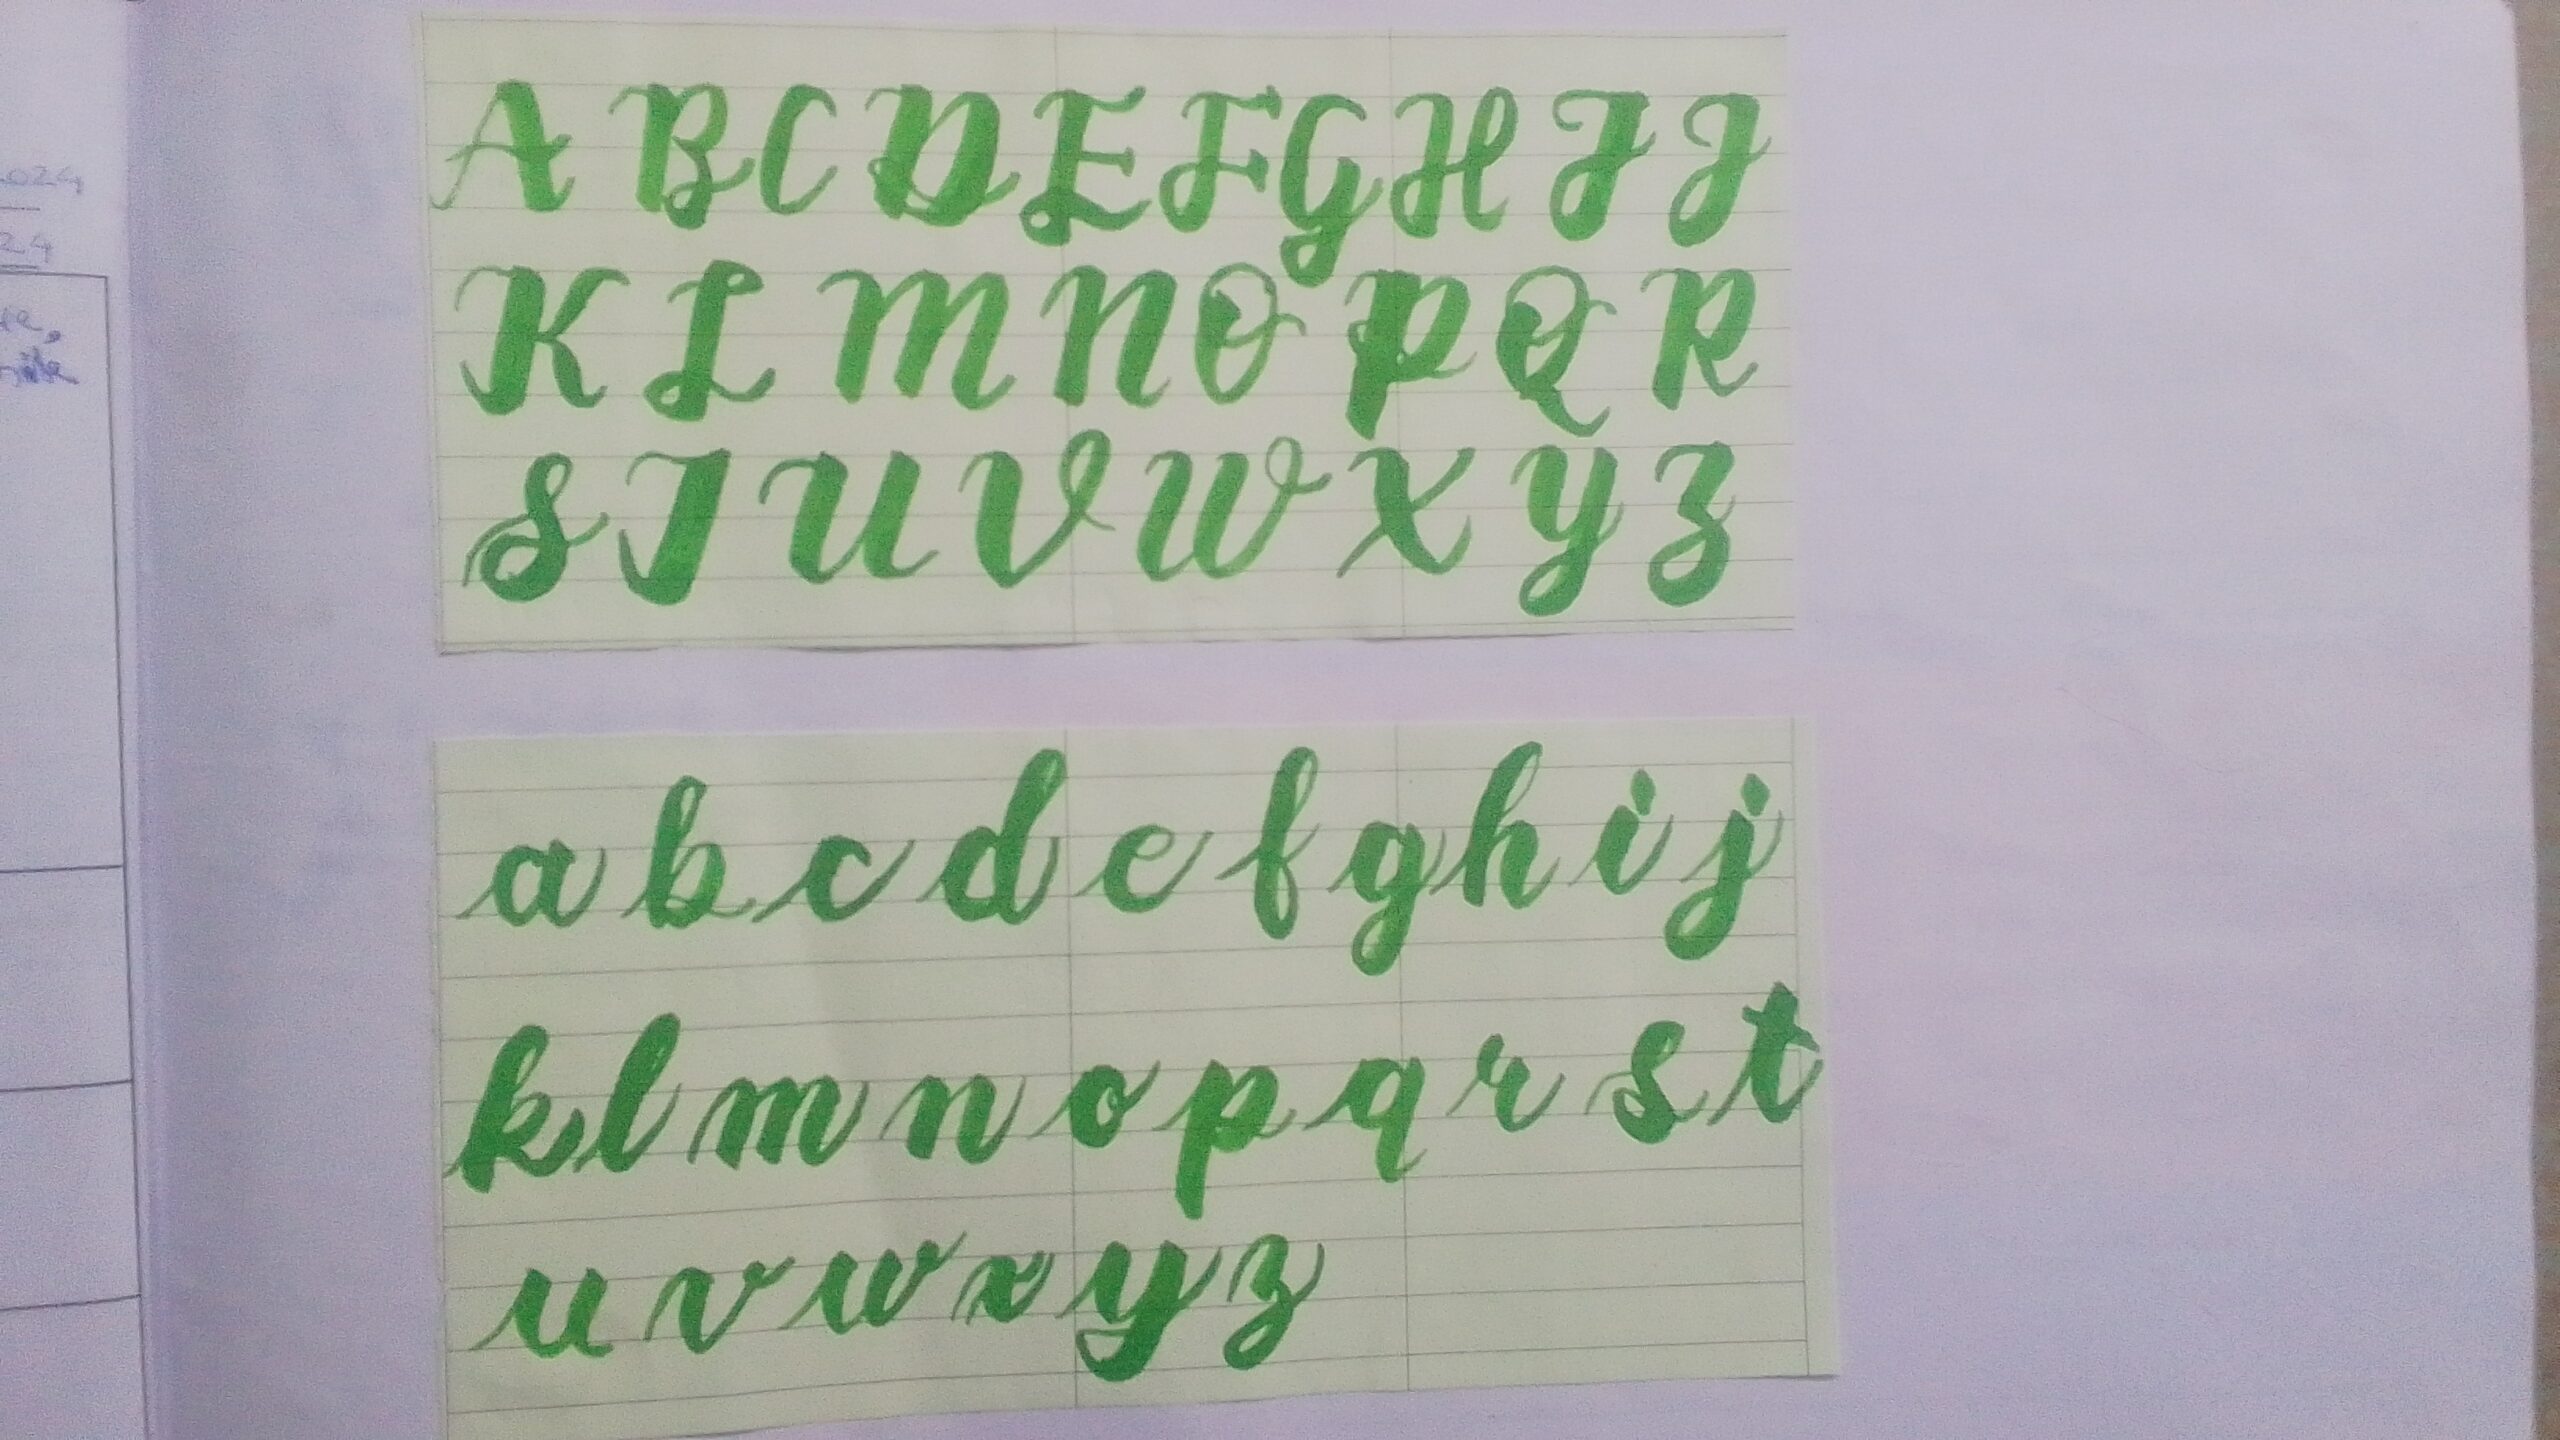 2024
24
A B C D E F G H I J
K L M N O P Q R
S T U V W X Y Z
a b c d e f g h i j
k l m n o p q r s t
u v w x y z